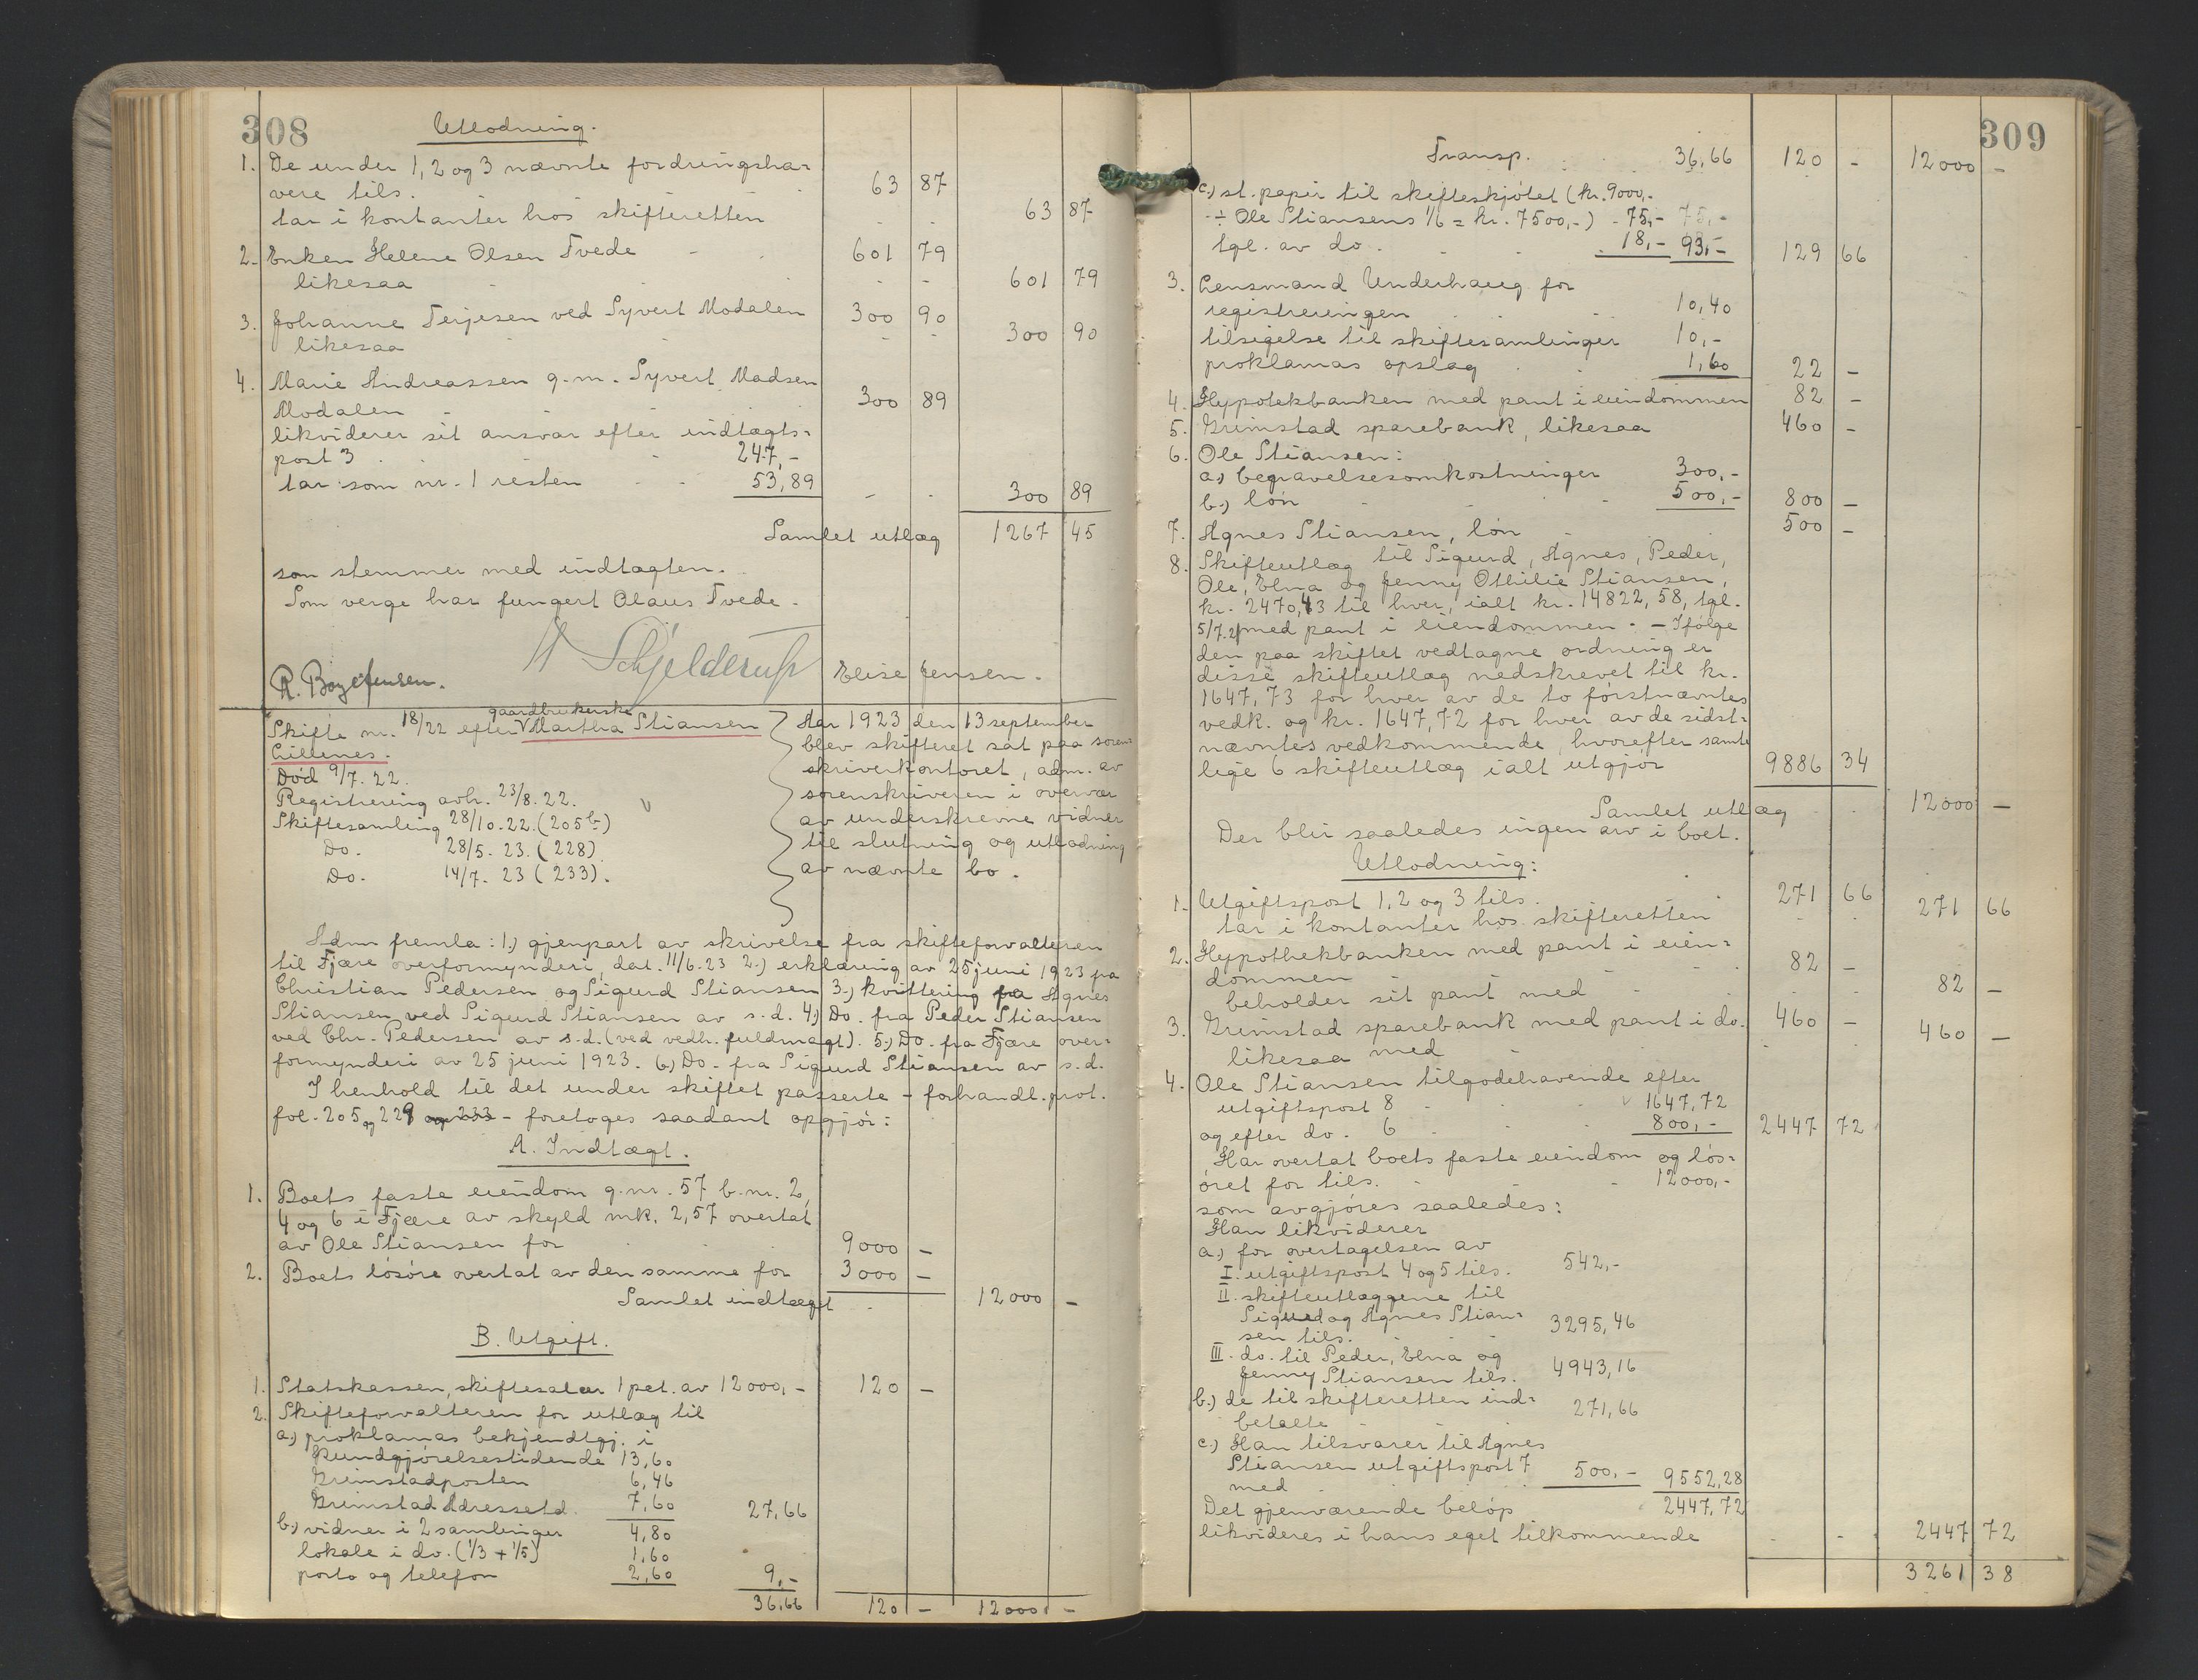 308
Utlodning.
1. De under 1, 2 og 3 nævnte fordringsha-
vere tils. 63 87
tar i kontanter hos skifteretten 63 87
2. Enken Helene Olsen Tvede 601 79
likesaa 601 79
3. Johanne Terjesen ved Syvert Modalen 300 90
likesaa 300 90
4. Marie Andreassen g.m. Syvert Madsen
Modalen 300 89
likviderer sit ansvar efter indtægts-
post 3 247,-
tar som nr. 1 resten 53,89 300 89
Samlet utlæg 1267 45
som stemmer med indtægten.
Som verge har fungert Olaus Tvede.
Schjelderup
R. Boye Jensen. Elise Jensen.
Skifte nr. 18/22 efter gaardbrukerske Martha Stiansen
Lillenes.
Død 9/7. 22.
Registrering avh. 23/8. 22.
Skiftesamling 28/10. 22. (205 b)
Do. 28/5. 23. (228)
Do. 14/7. 23 (233).
Aar 1923 den 13 september
blev skifteret sat paa soren-
skriverkontoret, adm. av
sorenskriveren i overvær
av underskrevne vidner
til slutning og utlodning
av nævnte bo.
Adm fremla: 1.) gjenpart av skrivelse fra skifteforvalteren
til Fjære overformynderi, dat. 11/6. 23 2.) erklæring av 25 juni 1923 fra
Christian Pedersen og Sigurd Stiansen 3.) kvittering fra Agnes
Stiansen ved Sigurd Stiansen av s.d. 4.) Do. fra Peder Stiansen
ved Chr. Pedersen av s.d. (ved vedh. fuldmagt). 5.) Do. fra Fjære over-
formynderi av 25 juni 1923. 6.) Do. fra Sigurd Stiansen av s.d.
I henhold til det under skiftet passerte - forhandl. prot.
fol. 205 og 229 og 233 - foretoges saadant opgjør:
A. Indtægt.
1. Boets faste eiendom g.nr. 57 b.nr. 2,
4 og 6 i Fjære av skyld mk. 2,57 overtat
av Ole Stiansen for 9000 -
2. Boets løsøre overtat av den samme for 3000 -
Samlet indtægt 12000 -
B. Utgift.
1. Statskassen, skiftesalær 1 pct. av 12000,- 120 -
2. Skifteforvalteren for utlæg til
a.) proklamas bekjendtgj. i
Kundgjørelsestidende 13,60
Grimstadposten 6,46
Grimstad Adressetd. 7,60 27,66
b.) vidner i 2 samlinger 4,80
lokale i do. (1/3 + 1/5) 1,60
porto og telefon 2,60 9,-
36,66 120 - 12000 -
309
Transp. 36,66 120 - 12000 -
c.) st. papir til skifteskjøtet (kr. 9000,-
÷ Ole Stiansens 1/6 = kr. 7500,-) - 75,- 75,-
tgl. av do. 18,- 93,- 129 66
3. Lensmand Underhaug for
registreringen 10,40
tilsigelse til skiftesamlinger 10,-
proklamas opslag 1,60 22 -
4. Hypotekbanken med pant i eiendommen 82 -
5. Grimstad sparebank, likesaa 460 -
6. Ole Stiansen:
a.) begravelsesomkostninger 300,-
b.) løn 500,- 800 -
7. Agnes Stiansen, løn 500 -
8. Skifteutlæg til Sigurd, Agnes, Peder,
Ole, Elna og Jenny Othilie Stiansen,
kr. 2470,43 til hver, ialt kr. 14822,58, tgl.
5/7.21 med pant i eiendommen. - Ifølge
den paa skiftet vedtagne ordning er
disse skifteutlæg nedskrevet til kr.
1647,73 for hver av de to førstnævntes
vedk. og kr. 1647,72 for hver av de sidst-
nævntes vedkommende, hvorefter samt-
lige 6 skifteutlæg ialt utgjør 9886 34
Samlet utlæg 12000 -
Der blir saaledes ingen arv i boet.
Utlodning:
1. Utgiftspost 1, 2 og 3 tils. 271 66
tar i kontanter hos skifteretten 271 66
2. Hypothekbanken med pant i eien-
dommen 82 -
beholder sit pant med 82 -
3. Grimstad sparebank med pant i do. 460 -
likesaa med 460 -
4. Ole Stiansen tilgodehavende efter
utgiftspost 8 1647,72
og efter do. 6 800,- 2447 72
Har overtat boets faste eiendom og løs-
øret for tils. 12000,-
som avgjøres saaledes:
Han likviderer
a.) for overtagelsen av
I. utgiftspost 4 og 5 tils. 542,-
II. skifteutlæggene til
Sigurd og Agnes Stian-
sen tils. 3295,46
III. do. til Peder, Elna og
Jenny Stiansen tils. 4943,16
b.) de til skifteretten ind-
betalte 271,66
c.) Han tilsvarer til Agnes
Stiansen utgiftspost 7
med 500,- 9552,28
Det gjenværende beløp 2447,72
likvideres i hans eget tilkommende 2447 72
3261 38